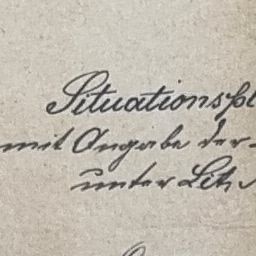 Situationspl
mit Angabe der
unter Litr